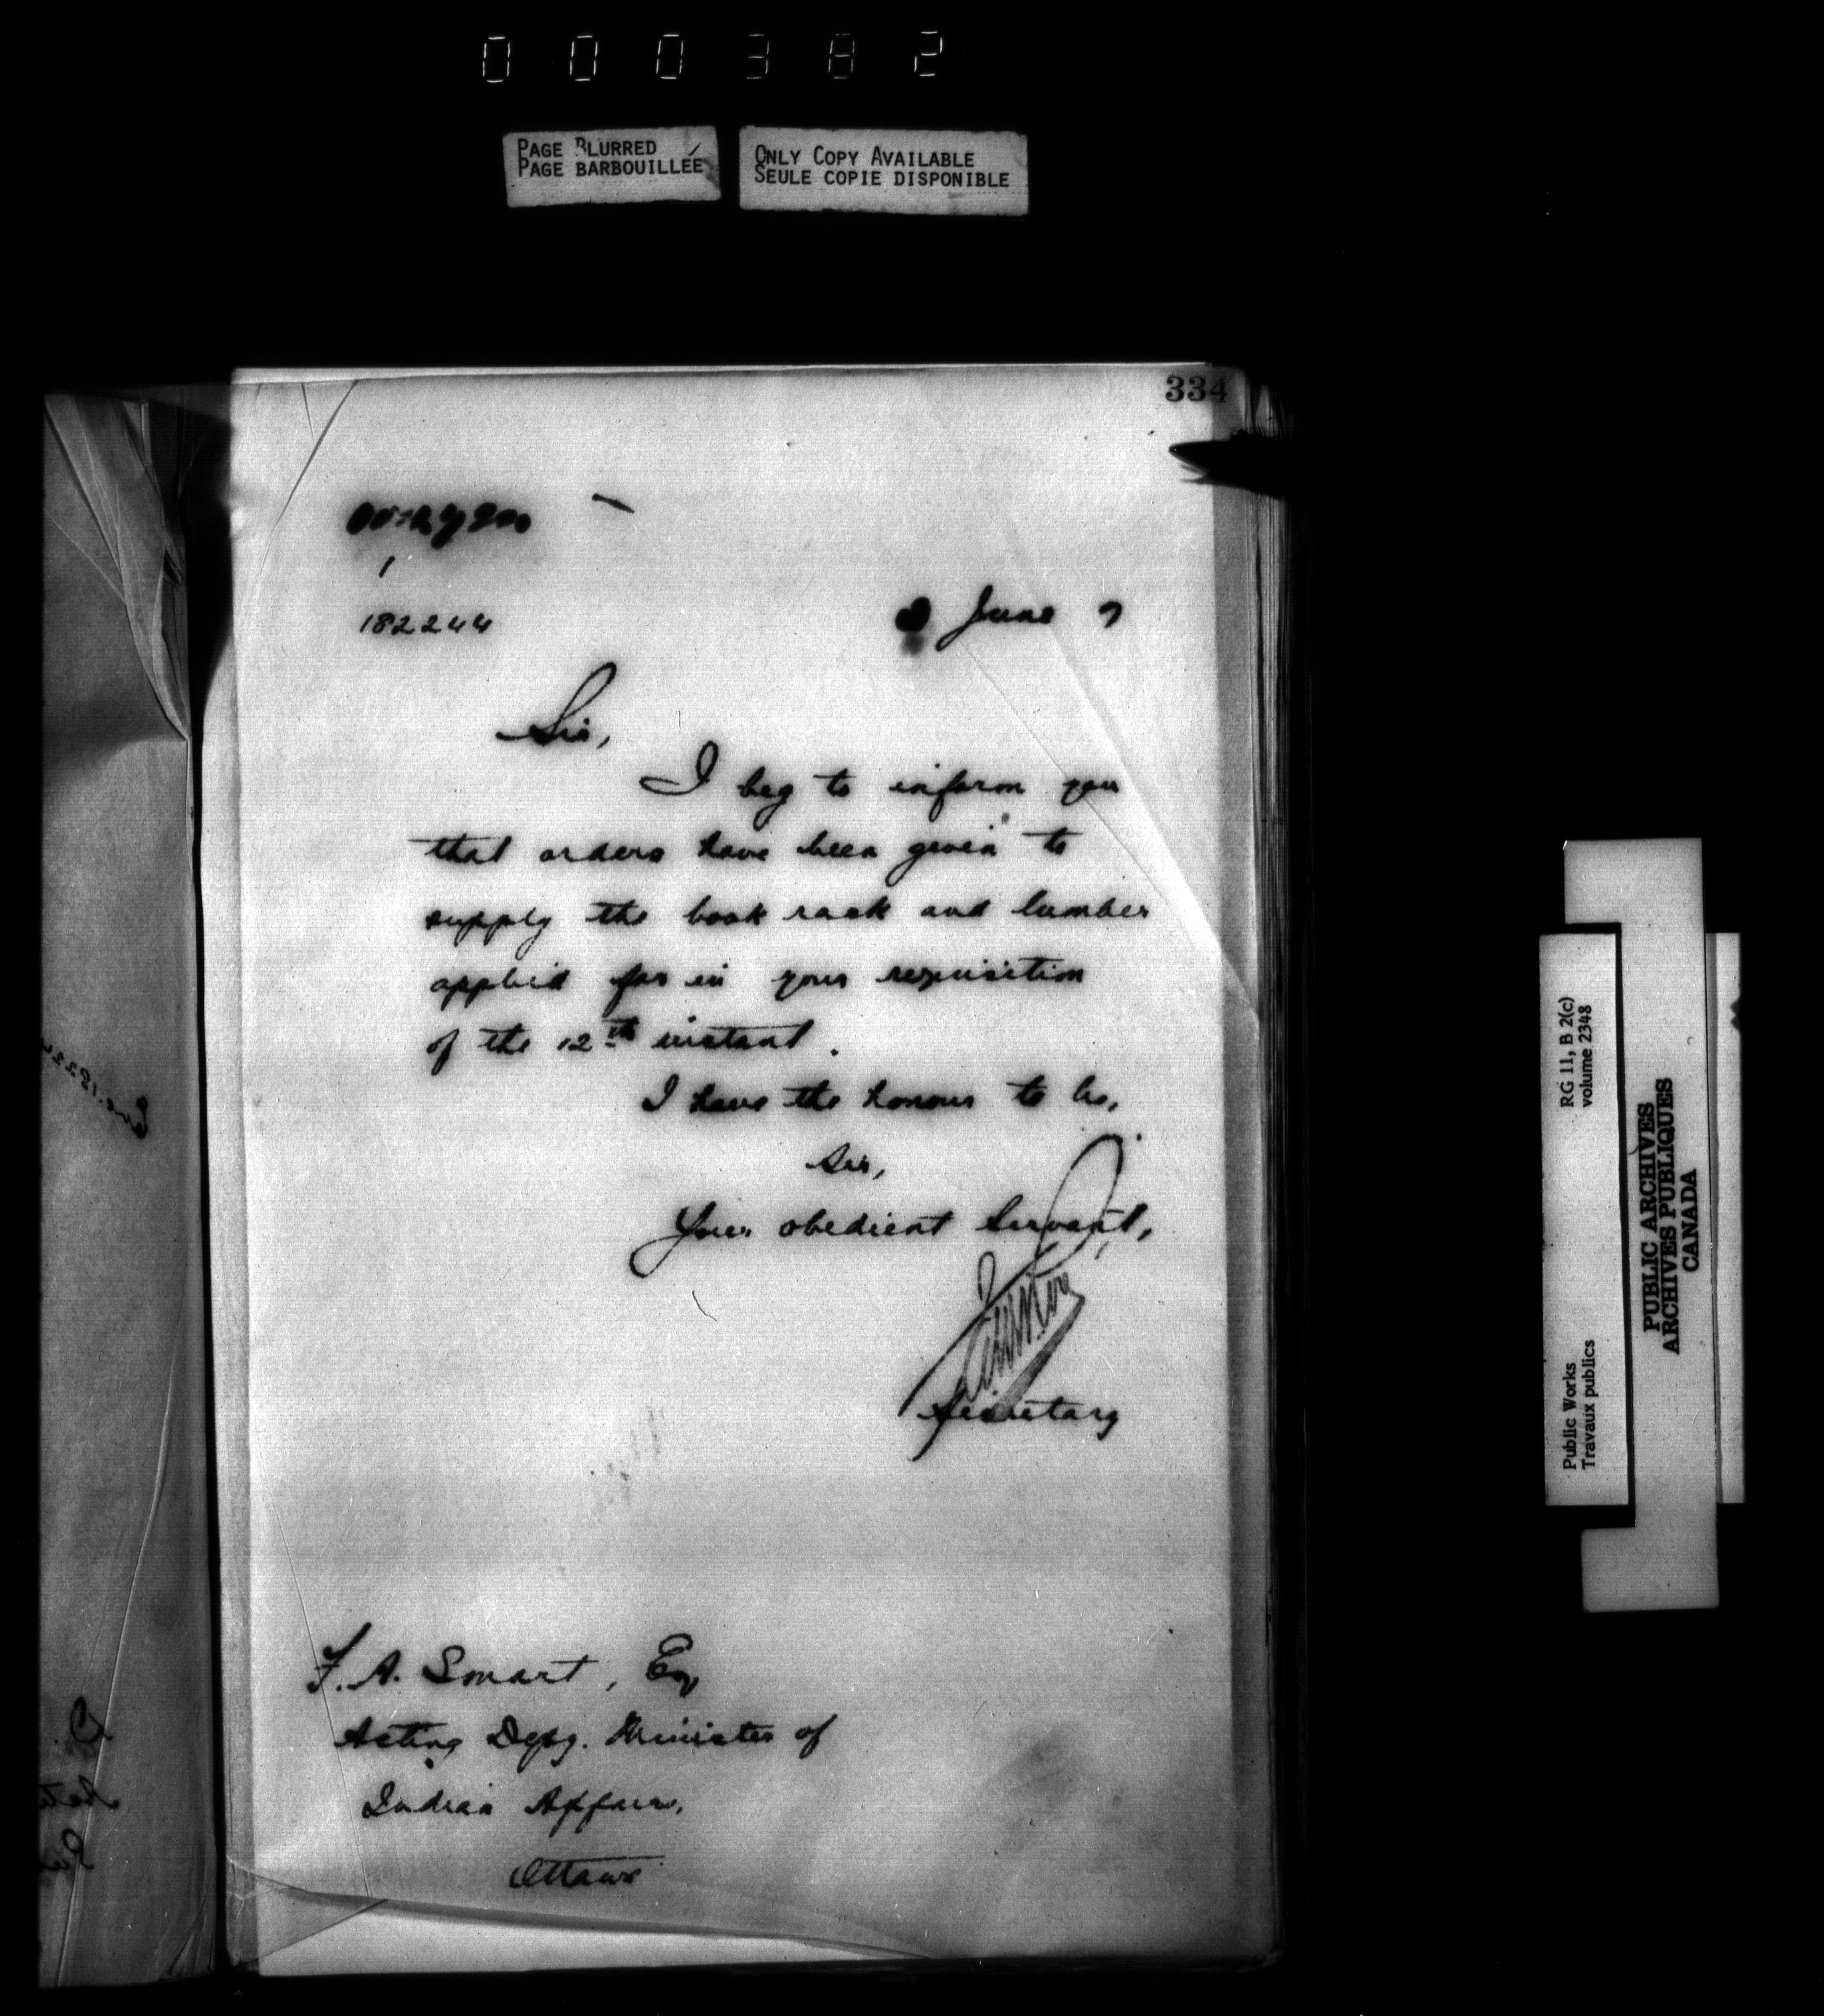 000382
PAGE BLURRED
PAGE BARBOUILLÉE
ONLY COPY AVAILABLE
SEULE COPIE DISPONIBLE
334
1
182244
June 7
Sir,
I beg to inform you
that orders have been given to
supply the book rack and lumber
applied for in your requisition
of the 12th instant.
I have the honour to be,
Sir,
Your obedient Servant,
Secretary
J. A. Smart, Esq
Acting Depy. Minister of
Indian Affairs,
Ottawa
RG 11, B 2(c)
volume 2348
Public Works
Travaux publics
PUBLIC ARCHIVES
ARCHIVES PUBLIQUES
CANADA